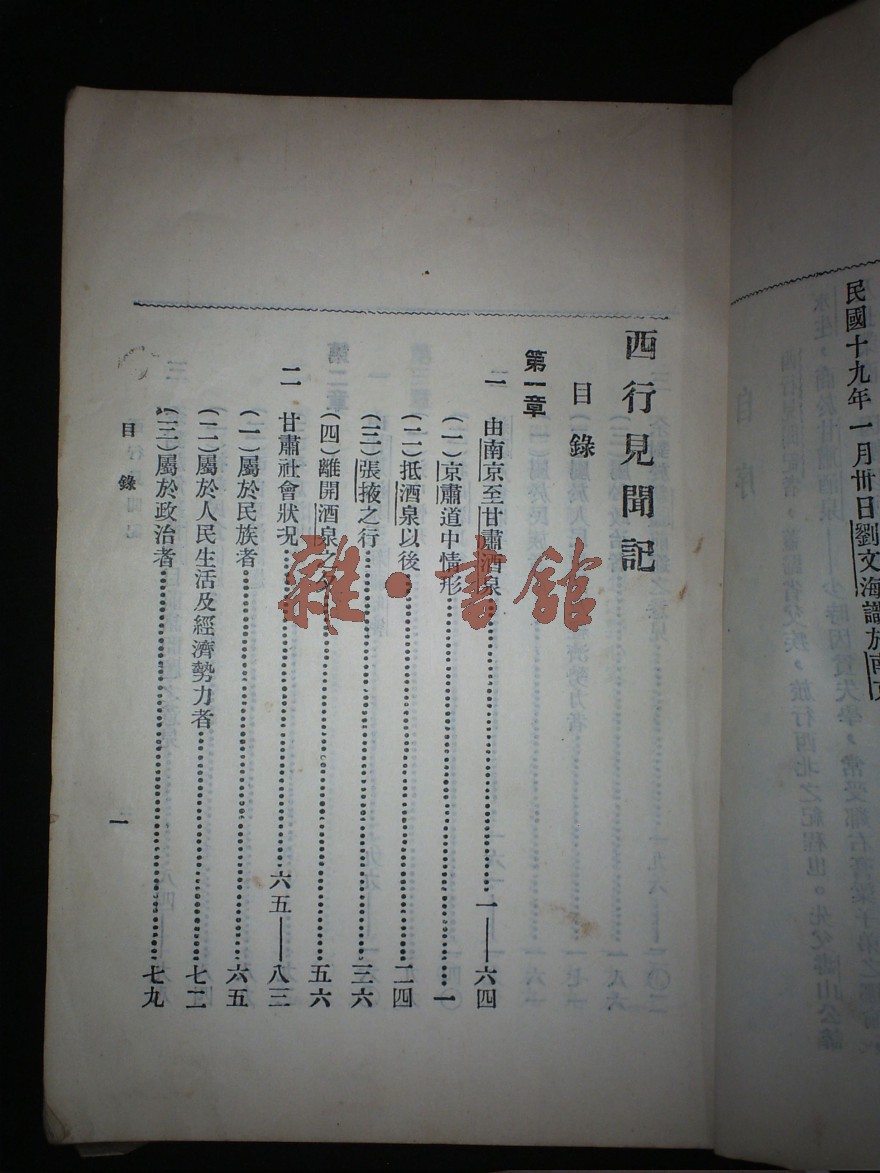 民國十九年一月卅日劉文海識於南京
西行見聞記
目錄
第一章
一 由南京至甘肅酒泉……一——六四
（一）京肅道中情形……一
（二）抵酒泉以後……二四
（三）張掖之行……三六
（四）離開酒泉之夕……五六
二 甘肅社會狀況……六五——八三
（一）屬於民族者……六五
（二）屬於人民生活及經濟勢力者……七二
（三）屬於政治者……七九
目錄
一
雜·書館